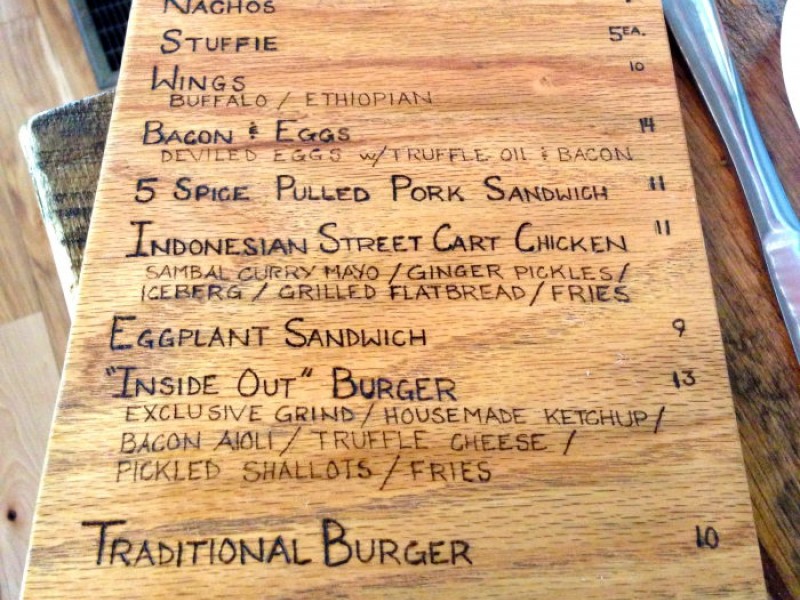 NACHOS
STUFFIE 5EA.
WINGS 10
BUFFALO / ETHIOPIAN
BACON & EGGS 14
DEVILED EGGS W/TRUFFLE OIL & BACON
5 SPICE PULLED PORK SANDWICH 11
INDONESIAN STREET CART CHICKEN 11
SAMBAL CURRY MAYO / GINGER PICKLES /
ICEBERG / GRILLED FLATBREAD / FRIES
EGGPLANT SANDWICH 9
"INSIDE OUT" BURGER 13
EXCLUSIVE GRIND / HOUSEMADE KETCHUP /
BACON AIOLI / TRUFFLE CHEESE /
PICKLED SHALLOTS / FRIES
TRADITIONAL BURGER 10